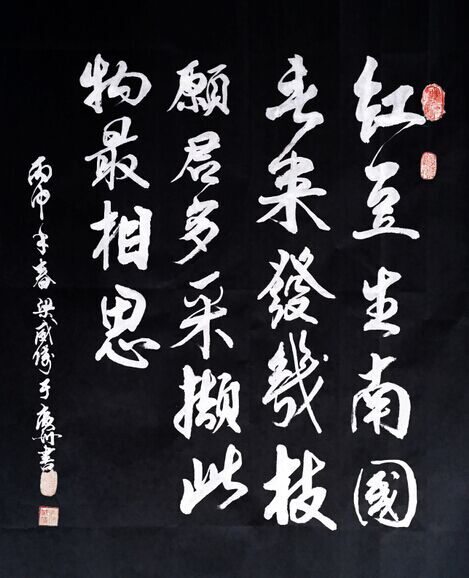 红豆生南國
春来發幾枝
願君多采擷此
物最相思
丙申年春梁威儀于廣州書